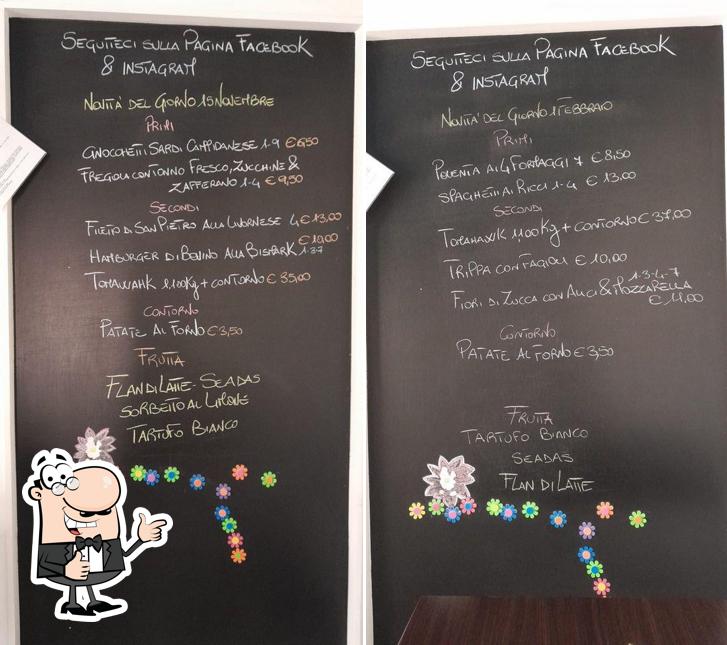 SEGUITECI SULLA PAGINA FACEBOOK
& INSTAGRAM
NOVITA' DEL GIORNO 15 NOVEMBRE
PRIMI
GNOCCHETTI SARDI CAMPIDANESE 1-9 €6,50
FREGOLA CON TONNO FRESCO, ZUCCHINE &
ZAFFERANO 1-4 €9,50
SECONDI
FILETTO DI SAN PIETRO ALLA LIVORNESE 4 €13,00
€10,00
HAMBURGER DI BOVINO ALLA BISMARK 1-3-7
TOMAWAHK 1,100Kg + CONTORNO € 35,00
CONTORNO
PATATE AL FORNO € 3,50
FRUTTA
FLAN DI LATTE - SEADAS
SORBETTO AL LIMONE
TARTUFO BIANCO
SEGUITECI SULLA PAGINA FACEBOOK
& INSTAGRAM
NOVITA' DEL GIORNO 1 FEBBRAIO
PRIMI
POLENTA AI 4 FORMAGGI 7 € 8,50
SPAGHETTI AI RICCI 1-4 € 13,00
SECONDI
TOMAHAWK 1,100Kg + CONTORNO € 37,00
TRIPPA CON FAGIOLI € 10,00
1-3-4-7
FIORI DI ZUCCA CON ALICI & MOZZARELLA
€ 11,00
CONTORNO
PATATE AL FORNO € 3,50
FRUTTA
TARTUFO BIANCO
SEADAS
FLAN DI LATTE